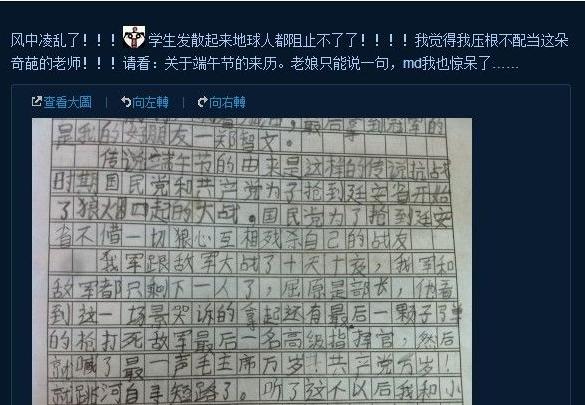 风中凌乱了！！！学生发散起来地球人都阻止不了了！！！！我觉得我压根不配当这朵
奇葩的老师！！！请看：关于端午节的来历。老娘只能说一句，md我也惊呆了……
查看大圖 | 向左轉 | 向右轉
最后拿到冠军的
是我的好朋友一郑智文。
传说端午节的由来是这样的传说抗战
时期国民党和共产党为了抢到延安省开始
了狼烟四起的大战。国民党为了抢到延安
省不惜一切狠心互相残杀自己的战友
我军跟敌军大战了十天十夜，我军和
敌军都只剩下一人了，屈原是部长，他看
到这一场景哭诉的拿起还有最后一颗子了单
的枪打死敌军最后一名高级指挥官，然后
就喊了最一声毛主席万岁！共产党万岁！
就跳河自寻短路了。听了这不以后我和小